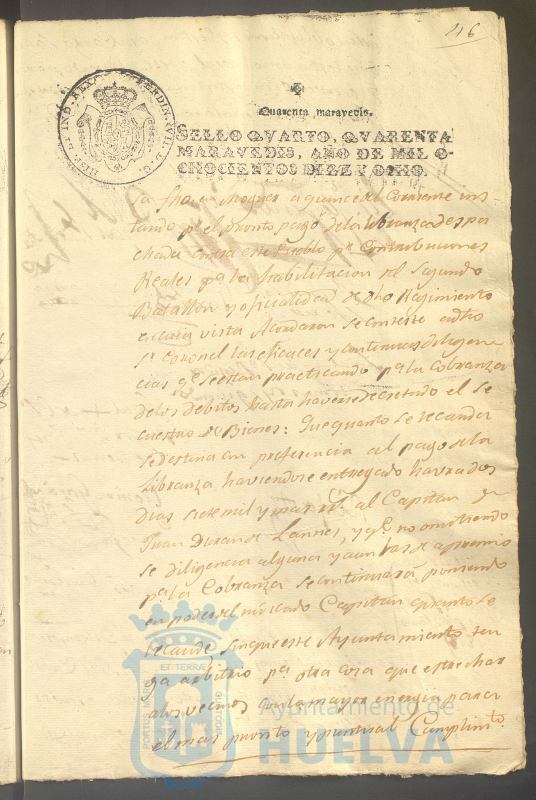 116
HISP. ET IND. REX FERDIN. VII. D. G.
Quarenta maravedis.
SELLO QVARTO, QVARENTA
MARAVEDIS, AÑO DE MIL O-
CHOCIENTOS DIEZ Y OCHO.
fha. en Moguer a quince del Corriente ins
tando pr. el pronto pago de la libranza despa
chada contra este Pueblo pr. Contribuciones
Reales pa. la habilitacion del segundo
Batallon y oficialidad de dho Regimiento
a cuia vista Acordaron se conteste a dho
Sr. Coronel las eficaces y continuas diligen
cias qe. se estan practicando pa. la Cobranza
de los debitos hasta haverse decretado el se
cuestro de Bienes: Que quanto se recauda
se destina con preferencia al pago de la
libranza haviendose entregado havra dos
dias siete mil y mas rs. al Capitan Dn.
Juan Durand Lannes, y qe. no omitiendo
se diligencia alguna y aun las de apremio
pa. la Cobranza se continuara poniendo
en poder del indicado Capitan quanto se
recaude sin que este Ayuntamiento ten
ga arbitrio pa. otra cosa que estrechar
a los vecinos con la mayor energia para
el mas pronto y puntual Cumplimto.
PORTUS MARIS ET TERRAE CUSTODIA
Ayuntamiento de
HUELVA